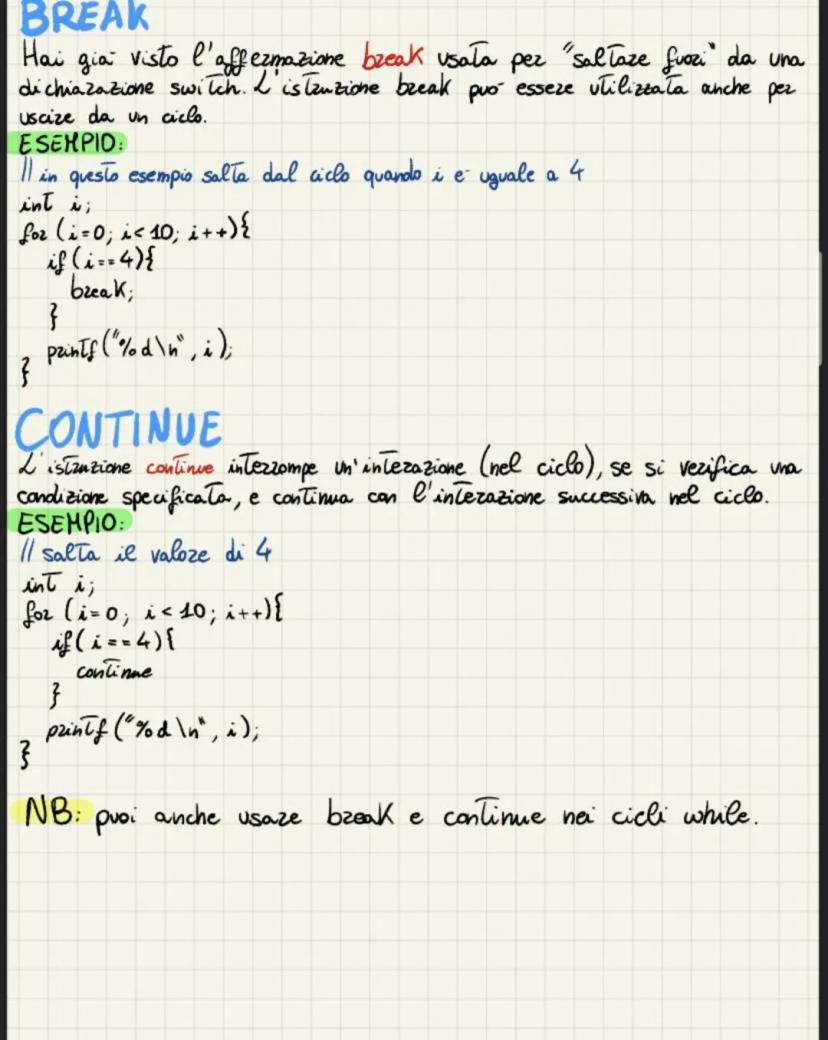 BREAK
Hai già visto l'affermazione break usata per "saltare fuori" da una
dichiarazione switch. L'istruzione break può essere utilizzata anche per
uscire da un ciclo.
ESEMPIO:
// in questo esempio salta dal ciclo quando i è uguale a 4
int i;
for (i=0; i<10; i++){
if (i==4){
break;
}
printf("%d\n", i);
}
CONTINUE
L'istruzione continue interrompe un'interazione (nel ciclo), se si verifica una
condizione specificata, e continua con l'interazione successiva nel ciclo.
ESEMPIO:
// salta il valore di 4
int i;
for (i=0; i<10; i++){
if(i==4){
continue
}
printf("%d\n", i);
}
NB: puoi anche usare break e continue nei cicli while.